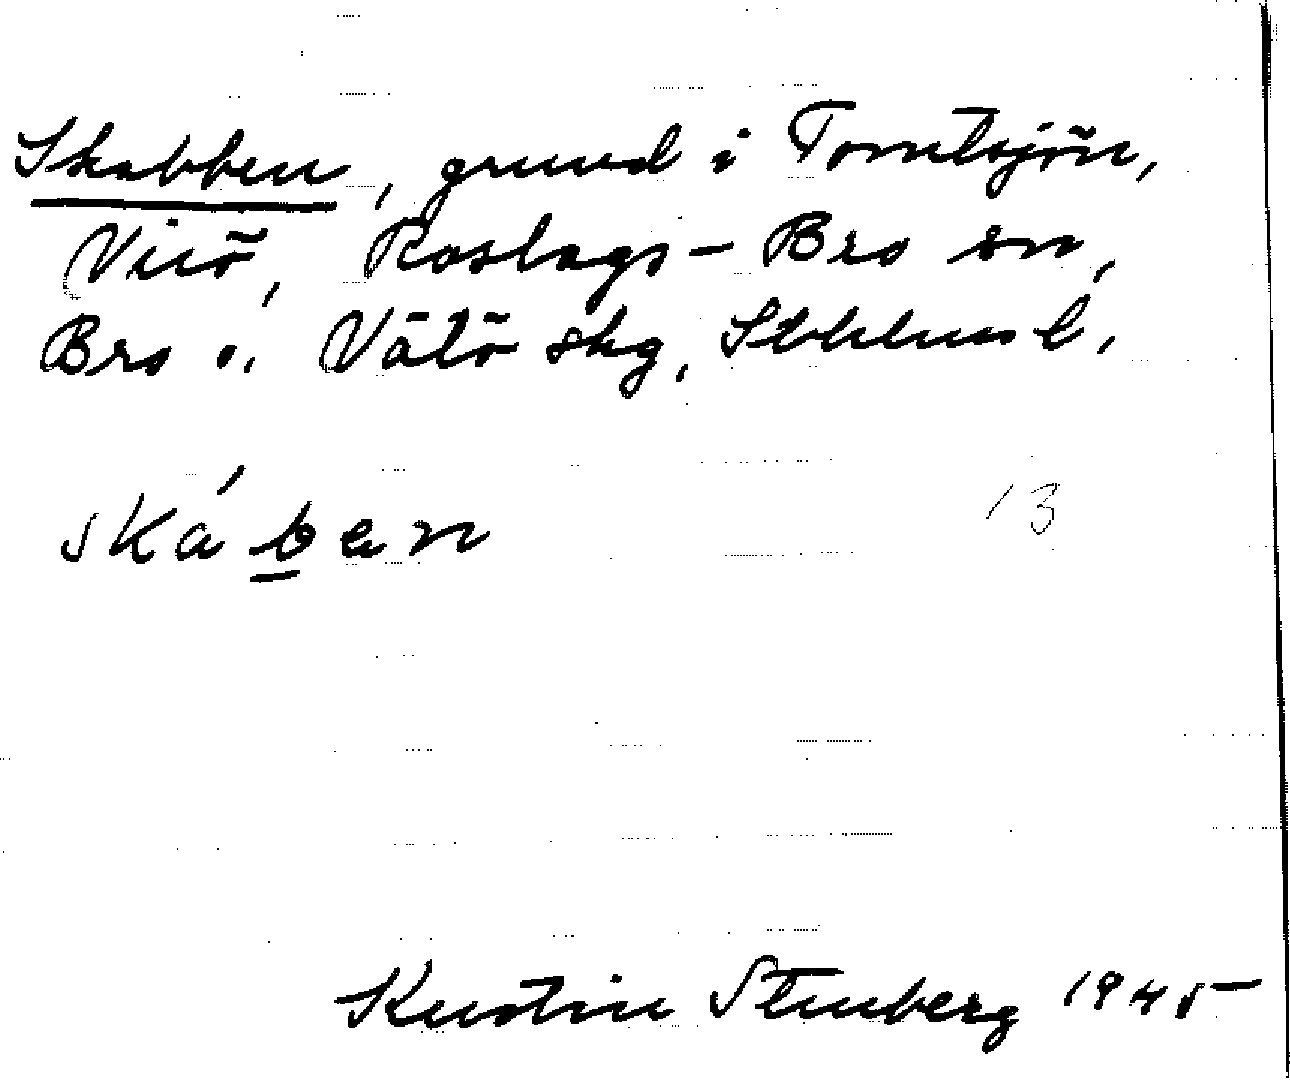 Skabben, grund i Tomtsjön,
Virö, Roslags-Bro sn,
Bro o. Vätö skg, Sthlms l.
skáben
13
Kerstin Stenberg 1945